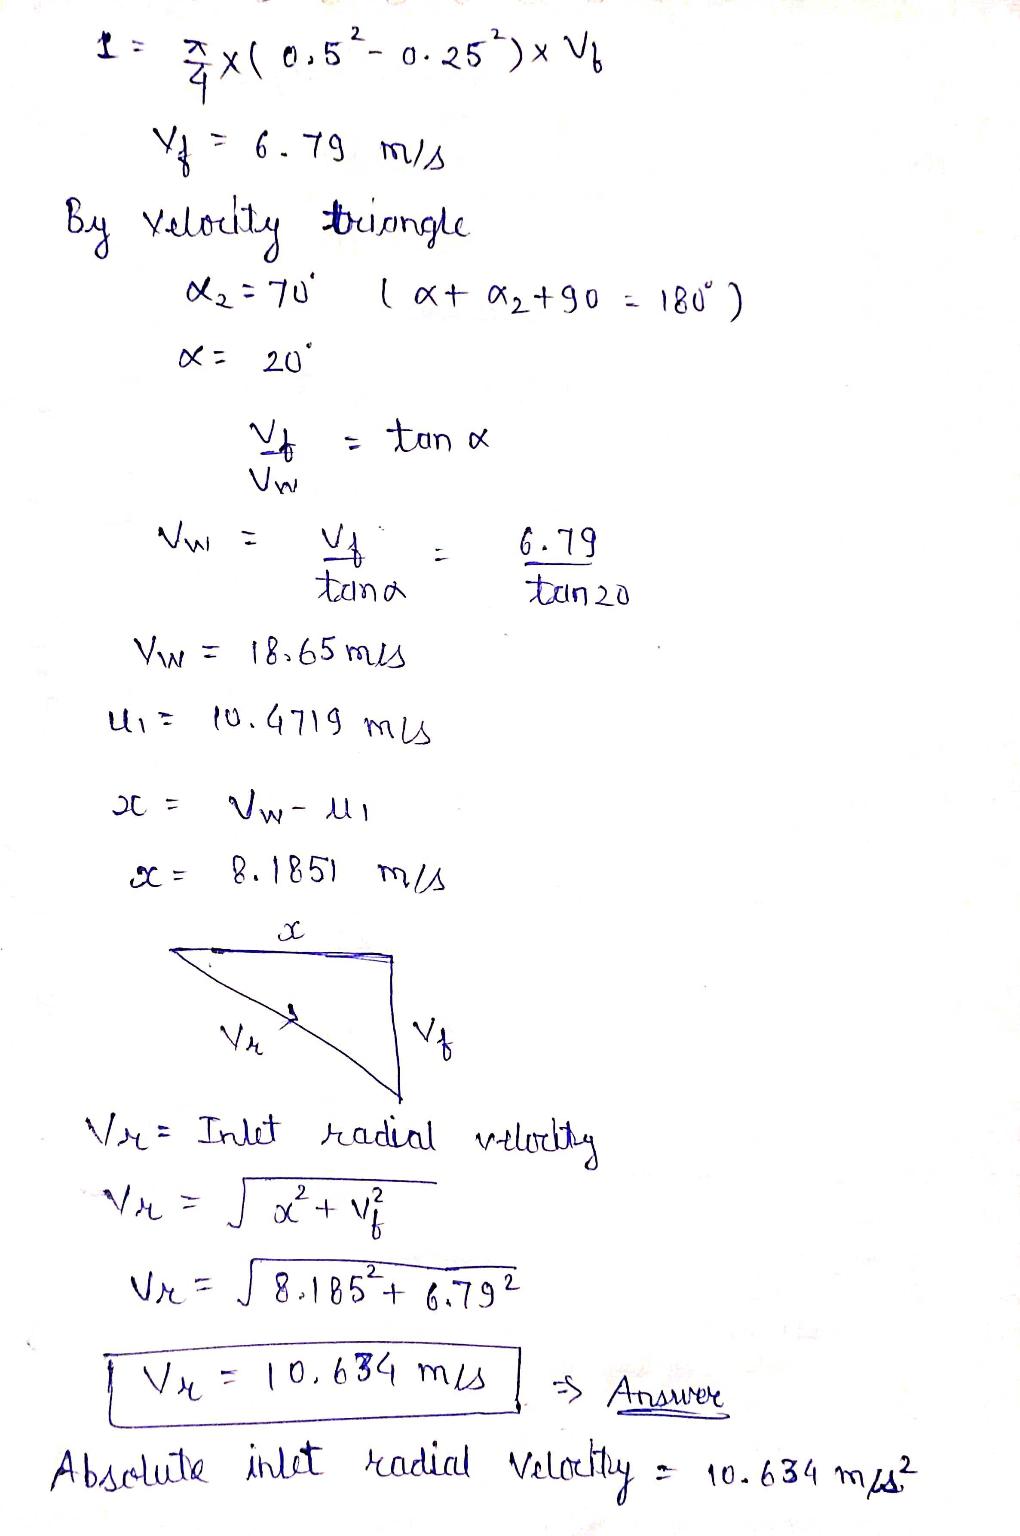 1 = π/4 × ( 0.5² - 0.25² ) × Vf
Vf = 6.79 m/s
By velocity triangle
α₂ = 70° ( α + α₂ + 90 = 180° )
α = 20°
Vf/Vw = tan α
Vw = Vf/tan α = 6.79/tan 20
Vw = 18.65 m/s
u₁ = 10.4719 m/s
x = Vw - u₁
x = 8.1851 m/s
x
Vr Vf
Vr = Inlet radial velocity
Vr = √(x² + Vf²)
Vr = √(8.185² + 6.79²)
Vr = 10.634 m/s ⇒ Answer
Absolute inlet radial velocity = 10.634 m/s²